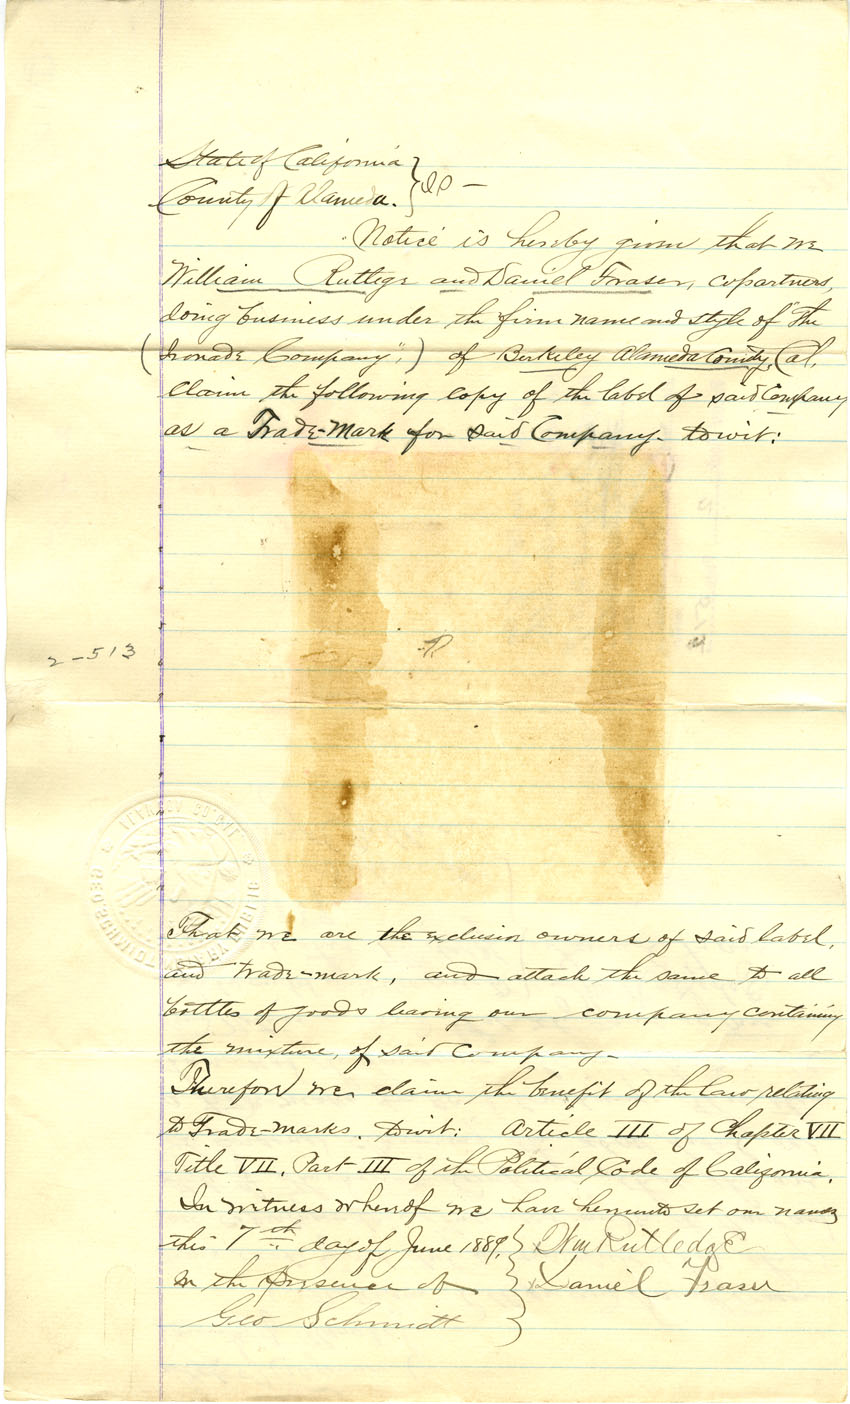 State of California }
County of Alameda. } SS —
Notice is hereby given that we
William Rutlege and Daniel Fraser, copartners,
doing business under the firm name and style of "The
(Ironade Company",) of Berkeley Alameda County, Cal.
Claim the following copy of the label of said Company
as a Trade-Mark for said Company. to wit:
2-513
That we are the exclusive owners of said label,
and trade-mark, and attach the same to all
bottles of goods leaving our company containing
the mixture, of said Company—
Therefore we claim the benefit of the law relating
to Trade-marks. to wit: Article III of Chapter VII
Title VII. Part III of the Political Code of California.
In witness whereof we have hereunto set our names
this 7th day of June 1889. } Wm Rutledge
in the presence of } Daniel Fraser
Geo Schmidt